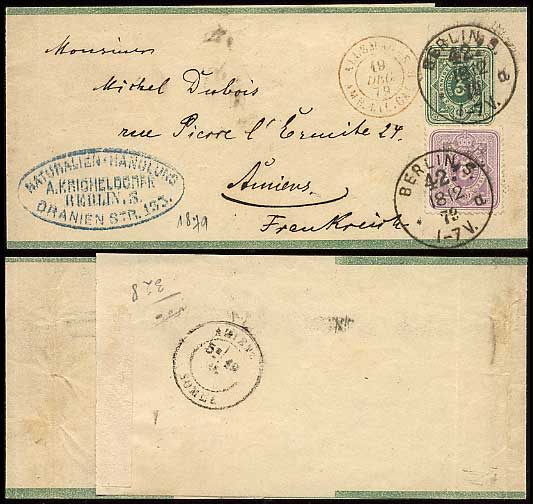 Monsieur
Michel Dubois
rue Pierre l'Ermite 24.
Amiens.
Frankreich
NATURALIEN-HANDLUNG
A.KRICHELDORFF
BERLIN, S.
ORANIEN STR. 135.
1879
19
DEC
79
BERLIN, S.
42.
1-7V.
BERLIN, S.
42.
18 12
79
1-7V.
d
AMIENS
SOMME